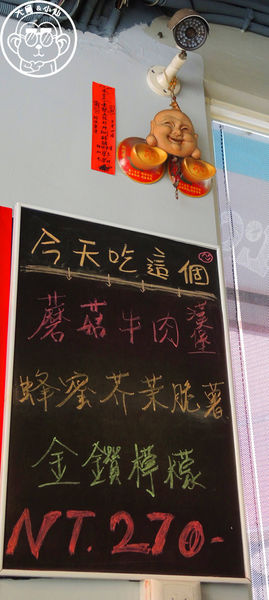 大嘴&小仙
今天吃這個
蘑菇牛肉漢堡
蜂蜜芥茉脆薯
金鑽檸檬
NT.270-